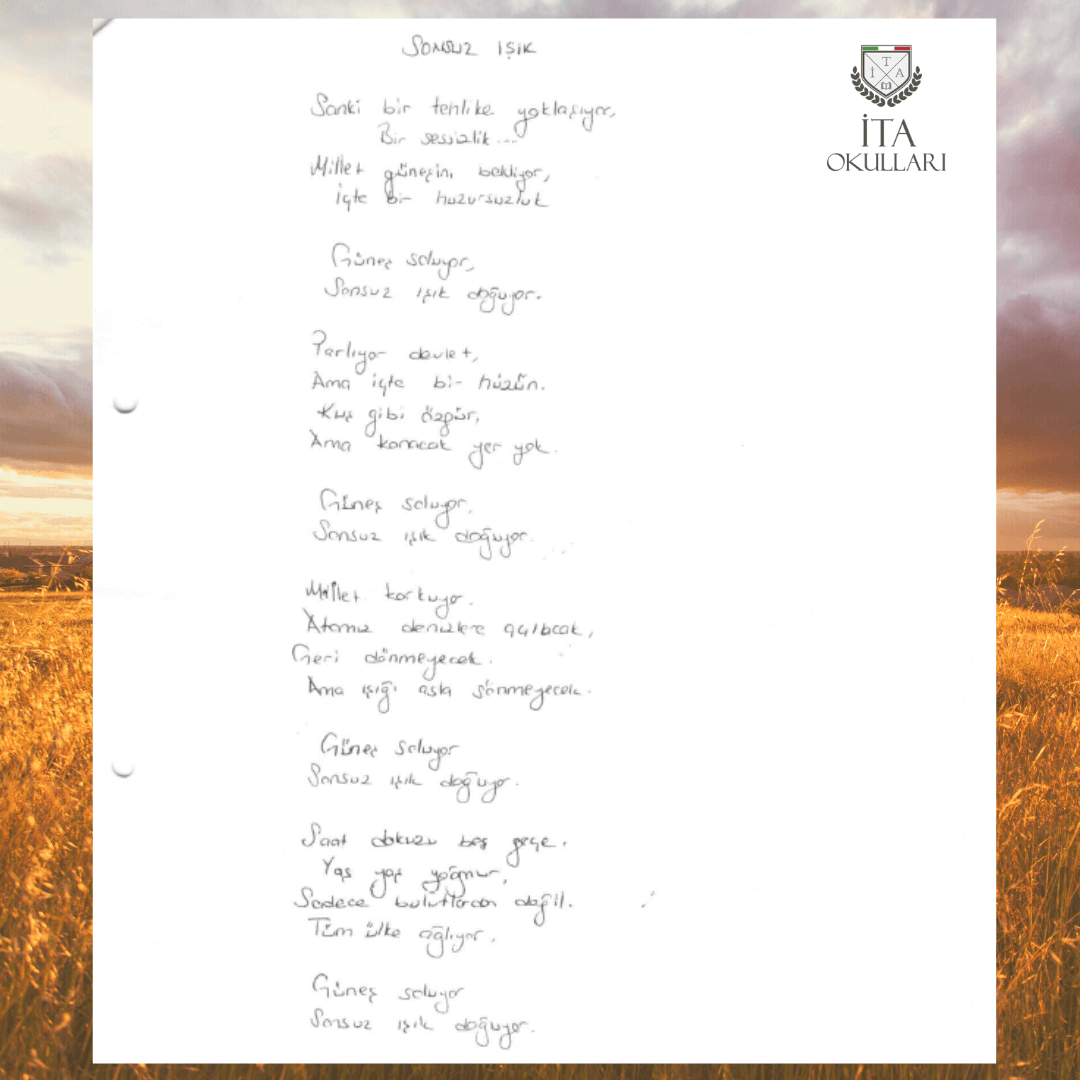 SONSUZ IŞIK
İTA
OKULLARI
Sanki bir tehlike yaklaşıyor,
Bir sessizlik...
Millet güneşini bekliyor,
İşte bir huzursuzluk
Güneş soluyor,
Sonsuz ışık doğuyor.
Parlıyor devlet,
Ama işte bir hüzün.
Kuş gibi özgür,
Ama konacak yer yok.
Güneş soluyor,
Sonsuz ışık doğuyor.
Millet korkuyor.
Atamız denizlere açılacak,
Geri dönmeyecek.
Ama ışığı asla sönmeyecek.
Güneş soluyor
Sonsuz ışık doğuyor.
Saat dokuzu beş geçe.
Yaş yaş yağmur,
Sadece bulutlardan değil.
Tüm ülke ağlıyor.
Güneş soluyor
Sonsuz ışık doğuyor.